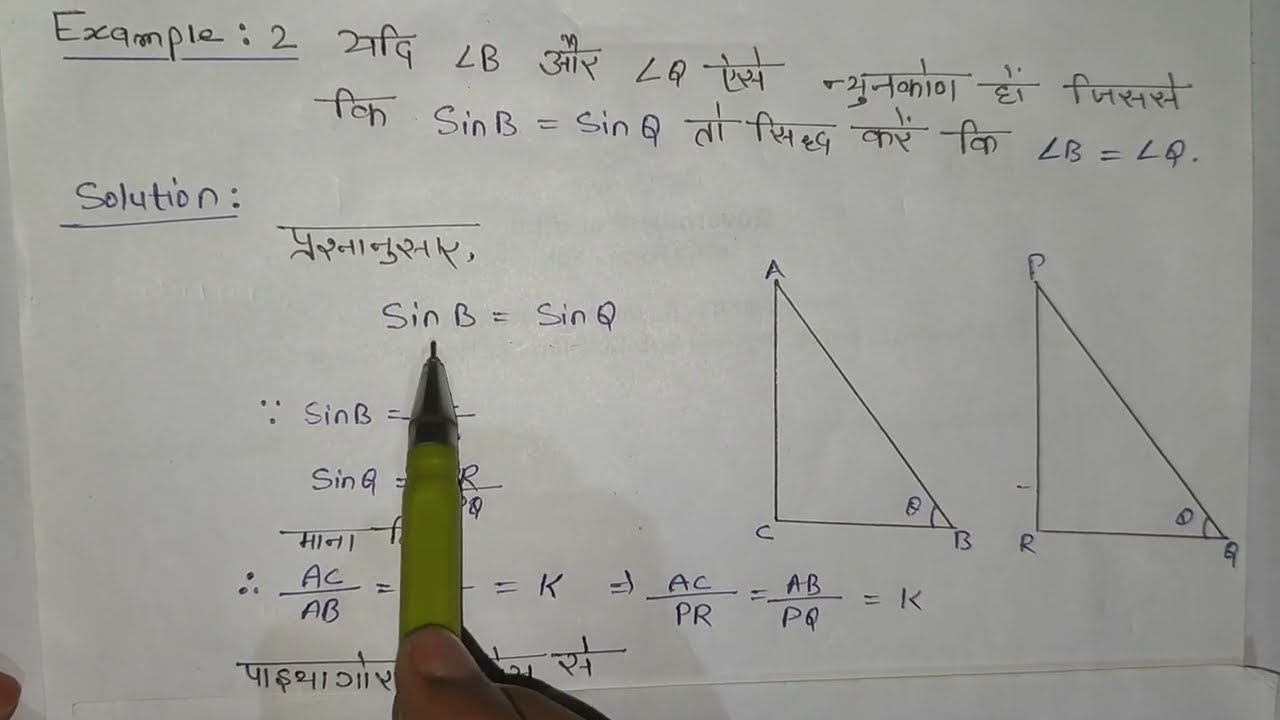 Example: 2 यदि ∠B और ∠Q ऐसे न्युनकोण हों जिससे
कि SinB = SinQ तो सिध्द करें कि ∠B = ∠Q.
Solution:
प्रश्नानुसार,
SinB = SinQ
∵ SinB =
SinQ =
माना
∴ AC/AB = = K ⇒ AC/PR = AB/PQ = K
से
A
C
B
θ
P
R
Q
θ